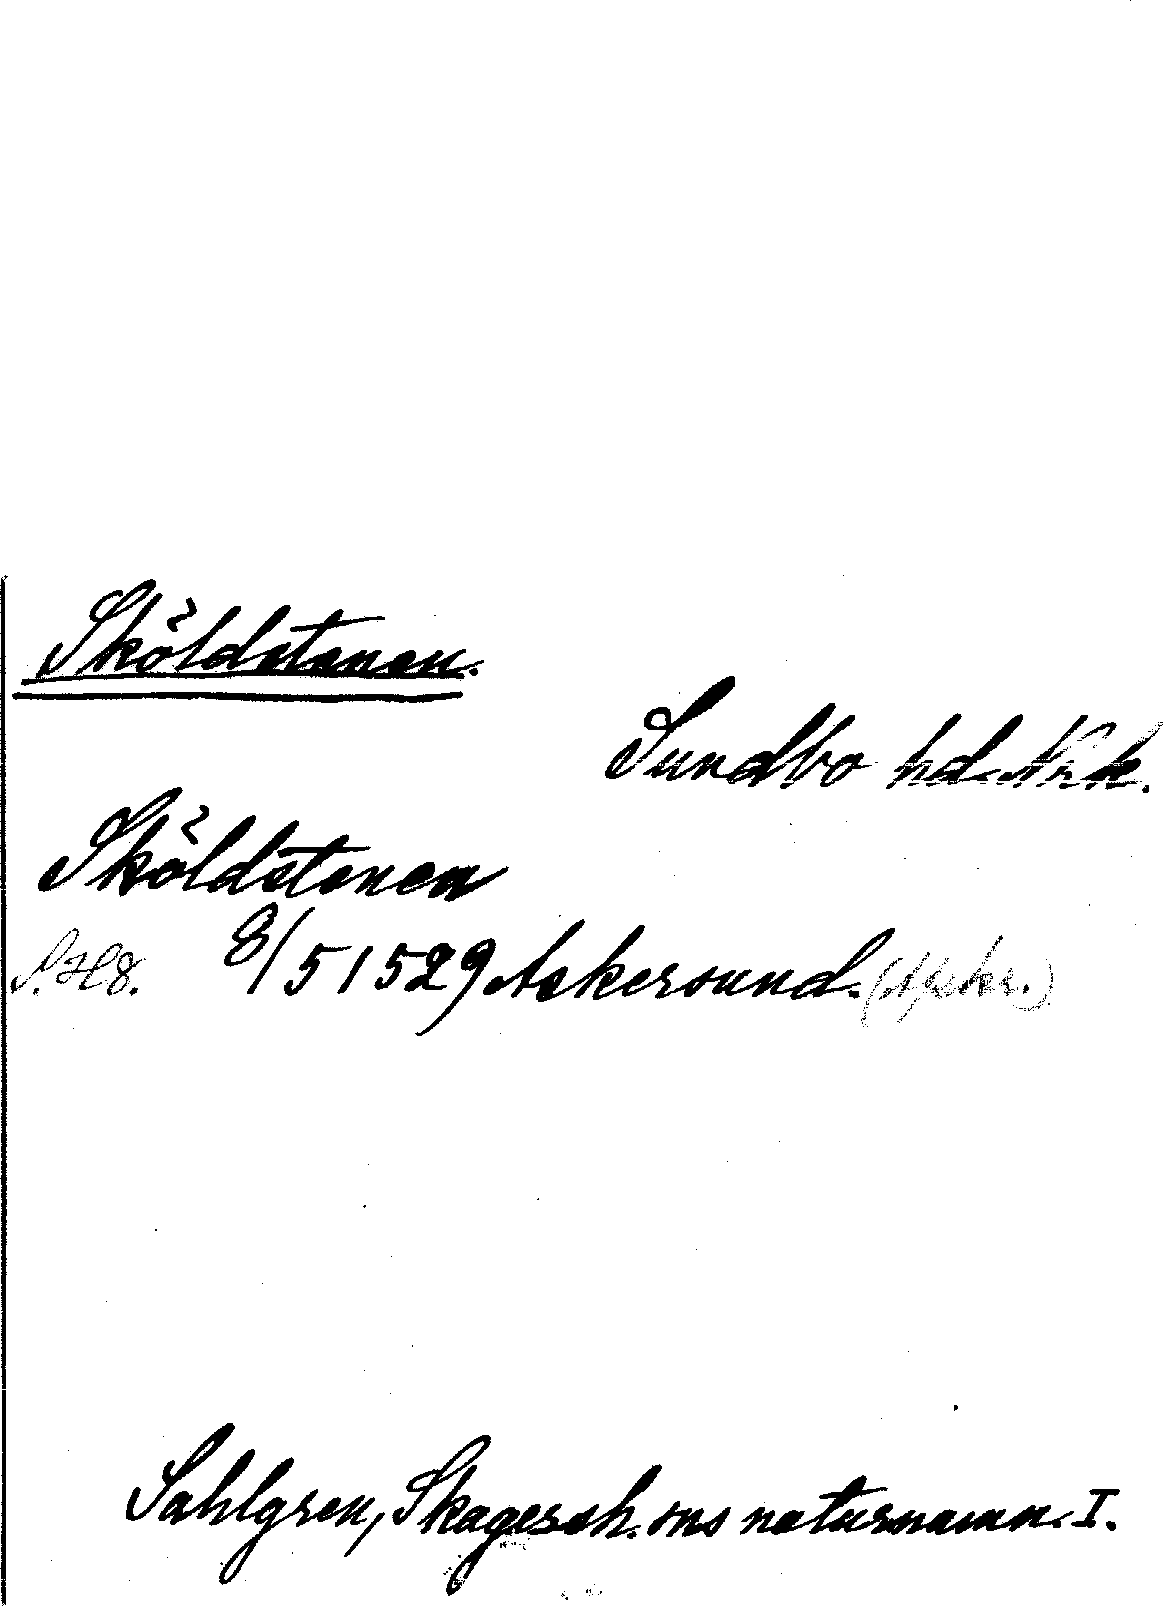 Sköldstenen.
Sundbo hd. Nrk.
Sköldstenen
8/5 1529 Askersund.
Sahlgren, Skagersh. sns naturnamn. I.